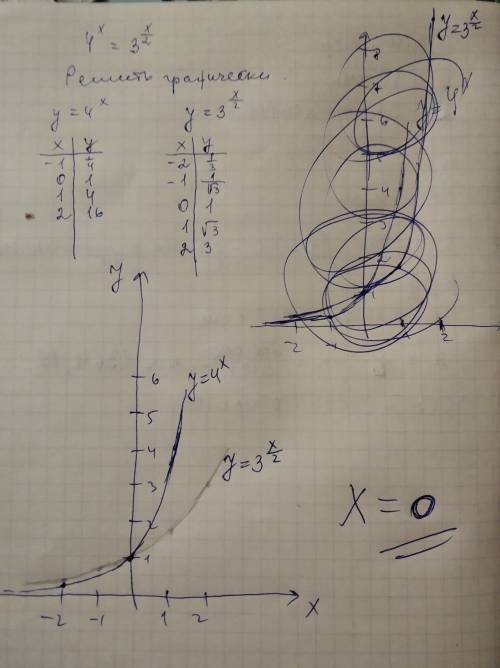 4^x = 3^{x/2}
Решить графически.
y = 4^x
x y
-1 1/4
0 1
1 4
2 16
y = 3^{x/2}
x y
-2 1/3
-1 1/√3
0 1
1 √3
2 3
y=3^{x/2}
y=4^x
8
7
6
4
3
2
1
-2 -1 1 2
y
6
5
4
3
2
1
y=4^x
y=3^{x/2}
-2 -1 1 2 x
X = 0